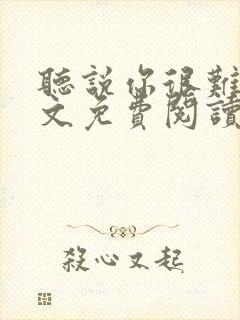 聽說你很難
文免費閱讀
殺心又起